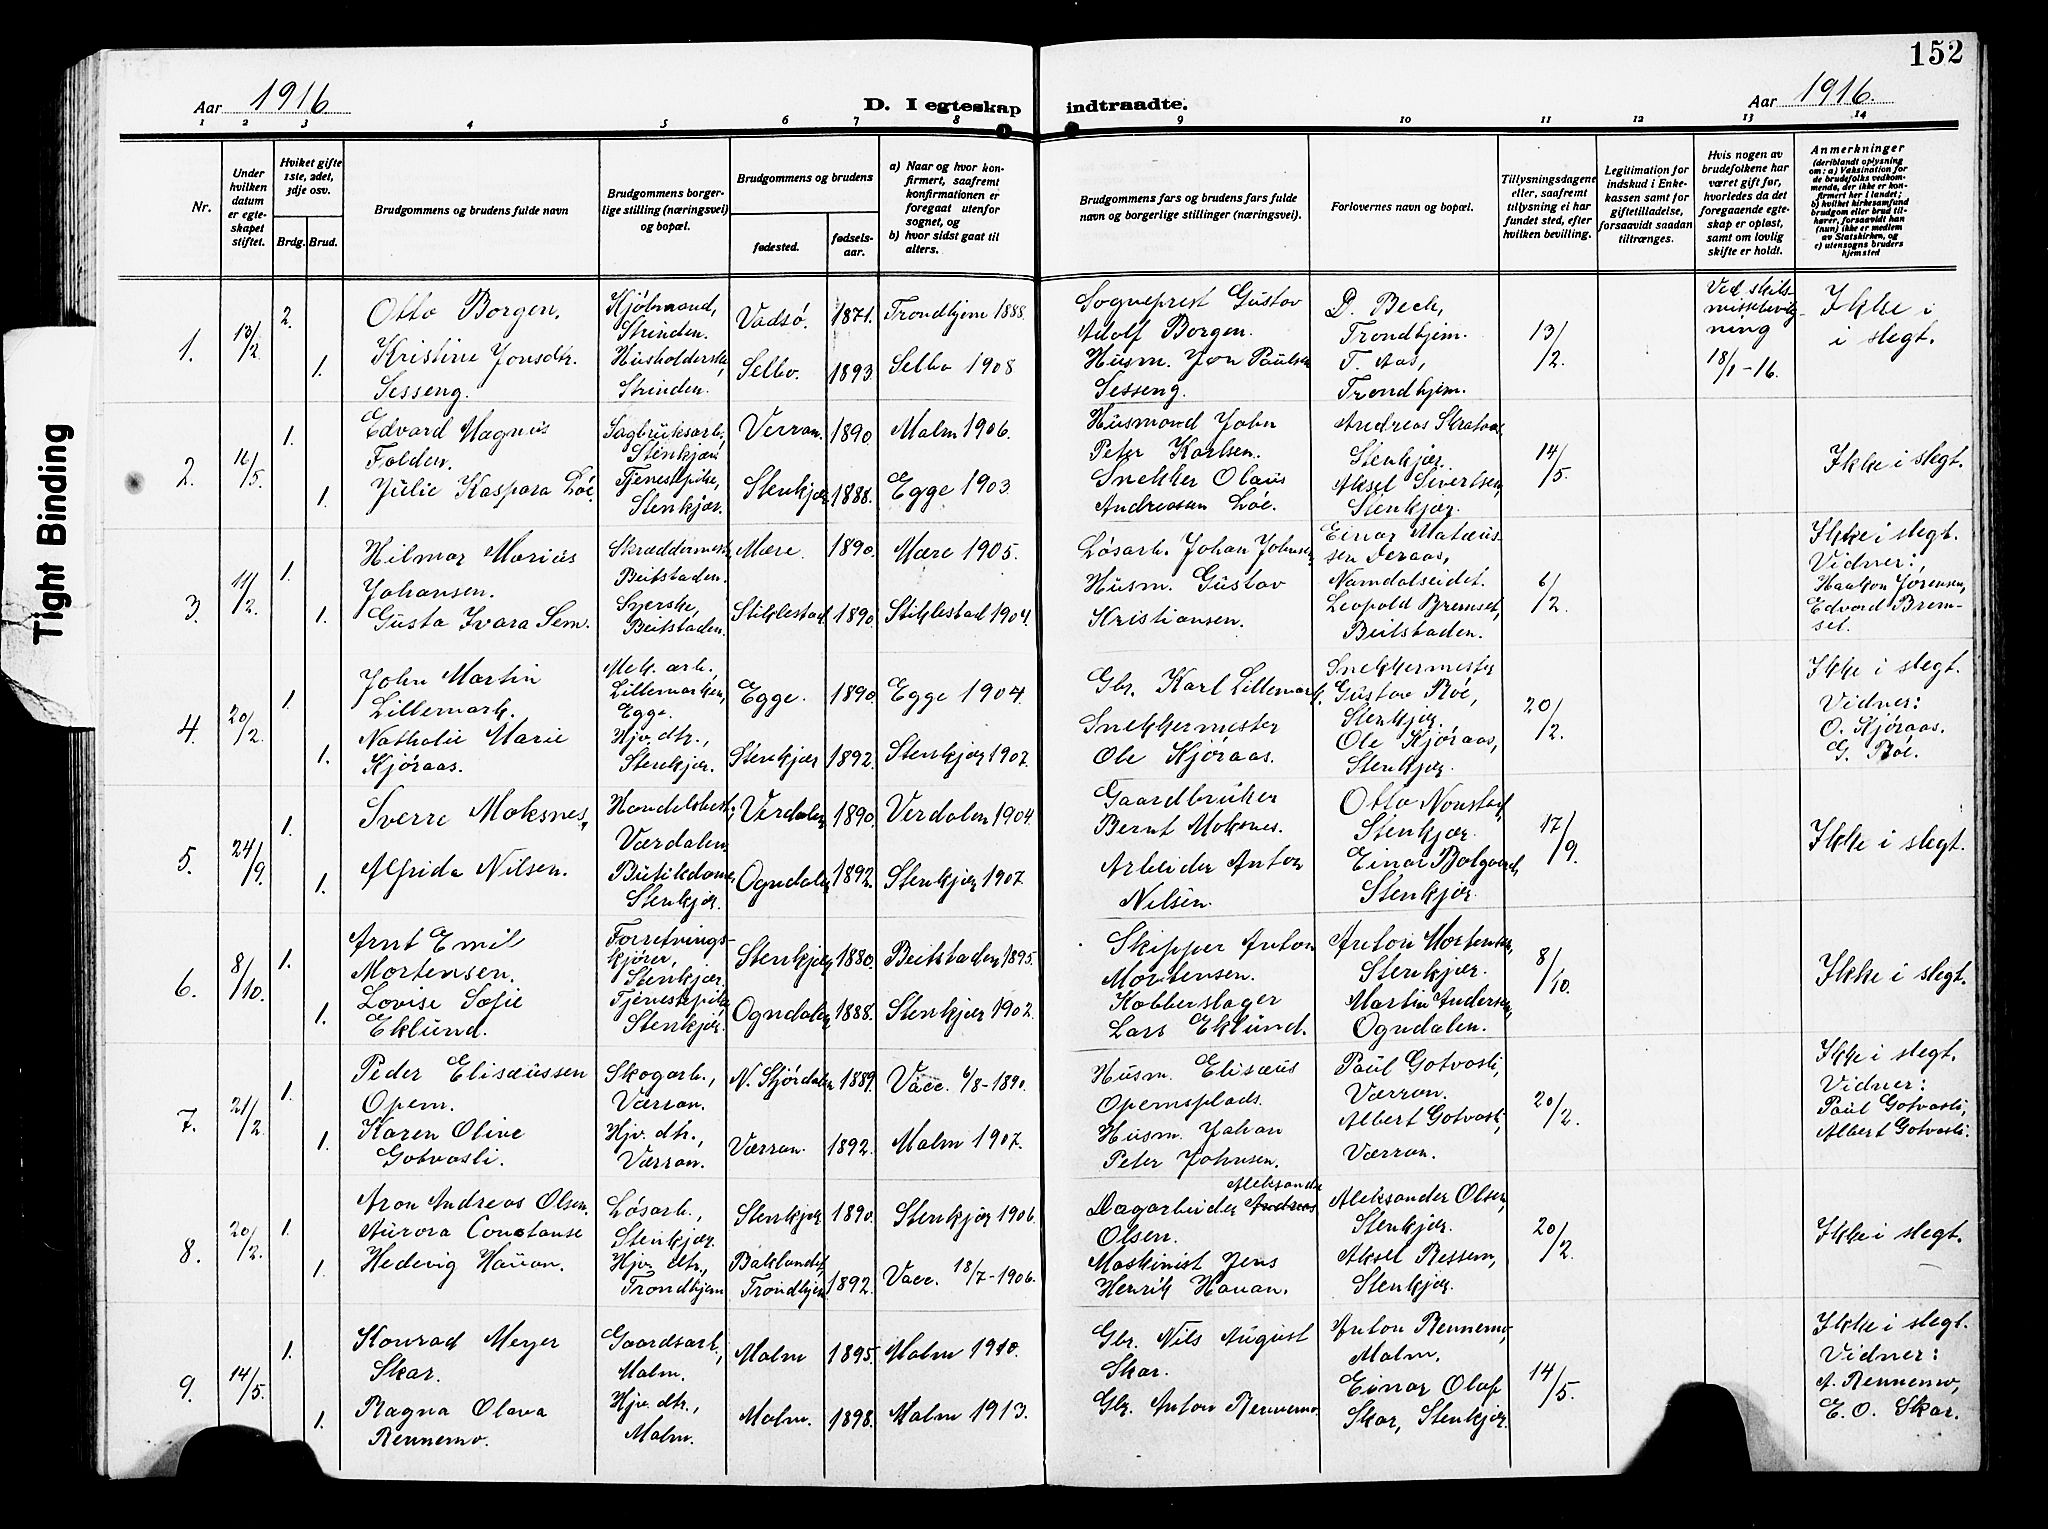 152
Aar 1916
D. I egteskap indtraadte.
Aar 1916.
1 2 3 4 5 6 7 8 9 10 11 12 13 14
Nr.
Under hvilken datum er egteskapet stiftet.
Hviket gifte 1ste, 2det, 3dje osv.
Brdg. Brud.
Brudgommens og brudens fulde navn
Brudgommens borgerlige stilling (næringsvei) og bopæl.
Brudgommens og brudens
fødested.
fødselsaar.
a) Naar og hvor konfirmert, saafremt konfirmationen er foregaat utenfor sognet, og
b) hvor sidst gaat til alters.
Brudgommens fars og brudens fars fulde navn og borgerlige stillinger (næringsvei).
Forlovernes navn og bopæl.
Tillysningsdagene eller, saafremt tillysning ei har fundet sted, efter hvilken bevilling.
Legitimation for indskud i Enkekassen samt for giftetilladelse, forsaavidt saadan tiltrænges.
Hvis nogen av brudefolkene har været gift før, hvorledes da det foregaaende egteskap er opløst, samt om lovlig skifte er holdt.
Anmerkninger
(deriblandt oplysning om: a) Vaksination for de brudefolks vedkommende, der ikke er konfirmert her i landet; b) hvilket kirkesamfund brudgom eller brud tilhører, forsaavidt han (hun) ikke er medlem av Statskirken, og c) utensogns bruders hjemsted
1. 13/2 2. Otto Borgen. Kjøbmand, Strinden. Vadsø. 1871. Trondhjem 1888. Sogneprest Gustav Adolf Borgen. D. Bech, Trondhjem. 13/2 Ved skilsmissebevilgning 18/1-16. Ikke i i slegt.
1. Kristine Jonsdtr. Sesseng. Husholderske, Strinden. Selbo. 1893 Selbo 1908 Husm. Jon Paulsen Sesseng. T. Aas, Trondhjem.
2. 14/5. 1. Edvard Magnus Folden. Sagbruksarb., Stenkjær Verran. 1890 Malm 1906. Husmand John Peter Karlsen. Andreas Stenkjær. 14/5 Ikke i slegt.
1. Julie Kaspara Løe. Tjenestepike, Stenkjær. Stenkjær 1888. Egge 1903. Snekker Olaus Andreassen Løe. Aksel Sivertsen, Stenkjær.
3. 11/2. 1. Hilmar Marius Johansen. Skræddermest. Beitstaden. Mære. 1890. Mære 1905. Løsarb. Johan Johnsen. Einar Matæussen Namdalseidet. 6/2 Ikke i slegt. Vidner: Haakon Jørensen, Edvard Bremset.
1. Gusta Ivara Sem. Syerske, Beitstaden. Stiklestad 1890. Stiklestad 1904. Husm. Gustav Kristiansen. Leopold Bremset, Beitstaden.
4. 20/2. 1. John Martin Lillemark. Mek. arb. Lillemarken, Egge. Egge. 1890. Egge 1904. Gbr. Karl Lillemark. Snekkermester Gustav Bøe, Stenkjær. 20/2. Ikke i slegt. Vidner: O. Kjøraas. G. Bøe.
1. Nathalie Marie Kjøraas. Hjv. dtr., Stenkjær. Stenkjær 1892. Stenkjær 1907. Snekkermester Ole Kjøraas. Ole Kjøraas, Stenkjær.
5. 24/9. 1. Sverre Moksnes. Handelsbest., Værdalen. Verdalen 1890. Verdalen 1904. Gaardbruker Bernt Moksnes. Otto Naustad, Stenkjær. 17/9. Ikke i slegt.
1. Alfrida Nilsen. Butikdame Stenkjær. Ogndalen 1892. Stenkjær 1907. Arbeider Anton Nilsen. Einar Stenkjær.
6. 8/10. 1. Arnt Emil Mortensen. Forretningskjører, Stenkjær. Stenkjær 1880. Beitstaden 1895. Skipper Anton Mortensen. Anton Mortensen, Stenkjær. 8/10. Ikke i slegt.
1. Lovise Sofie Eklund. Tjenestepike, Stenkjær. Ogndalen 1888. Stenkjær 1902. Kobberslager Lars Eklund. Martin Andersen, Ogndalen.
7. 21/2. 1. Peder Elisæussen Opem. Skogarb., Værran. N. Stjørdalen 1889. Vacc. 6/8-1890. Husm. Elisæus Opemsplads. Paul Gotvasli, Værran. 20/2. Ikke i slegt. Vidner: Paul Gotvasli, Albert Gotvasli.
1. Karen Oline Gotvasli. Hjv. dtr., Værran. Værran. 1892. Malm 1907. Husm. Johan Peter Johnsen. Albert Gotvasli, Værran.
8. 20/2. 1. Aron Andreas Olsen. Løsarb., Stenkjær. Stenkjær 1890. Stenkjær 1906. Dagarbeider Andreas Aleksander Olsen. Aleksander Olsen, Stenkjær. 20/2. Ikke i slegt.
1. Aurora Constanse Hedevig Hauan. Hjv. dtr., Trondhjem Baklandet, Trondhjem 1892. Vacc. 18/7-1906. Maskinist Jens Henrik Hauan. Aksel Ressem, Stenkjær.
9. 14/5. 1. Konrad Meyer Skar. Gaardsarb., Malm. Malm 1895. Malm 1910. Gbr. Nils August Skar. Anton Rennemo, Malm. 14/5. Ikke i slegt. Vidner: A. Rennemo, E. O. Skar.
1. Ragna Olava Rennemo. Hjv. dtr., Malm. Malm. 1898. Malm 1913. Gbr. Anton Rennemo. Einar Olaf Skar, Stenkjær.
Tight Binding